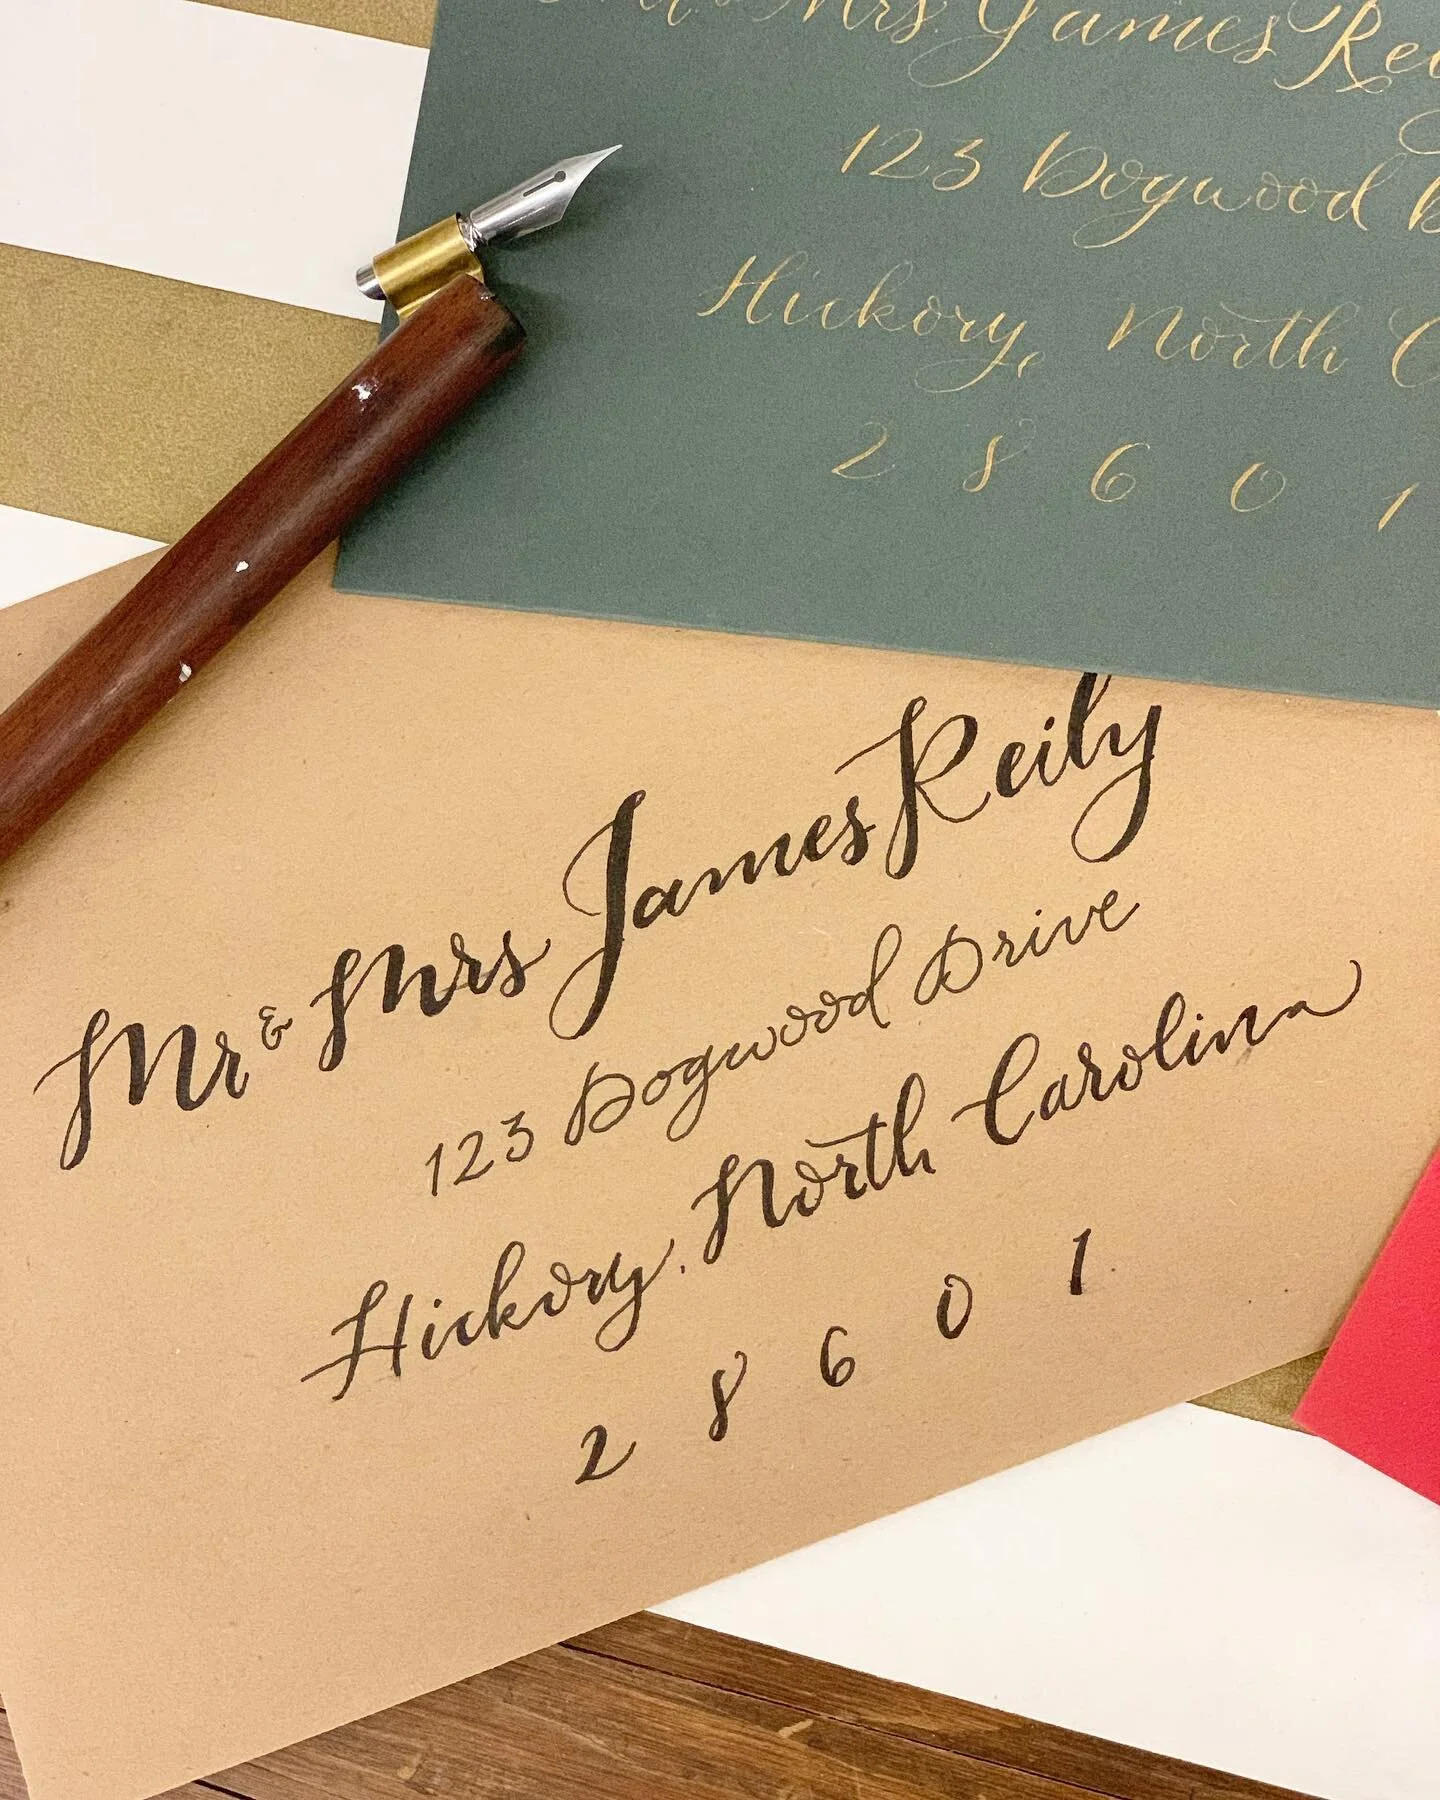 Mrs. James
123 Dogwood
Hickory, North
2 8 6 0 1
Mr & Mrs James Reily
123 Dogwood Drive
Hickory, North Carolina
2 8 6 0 1